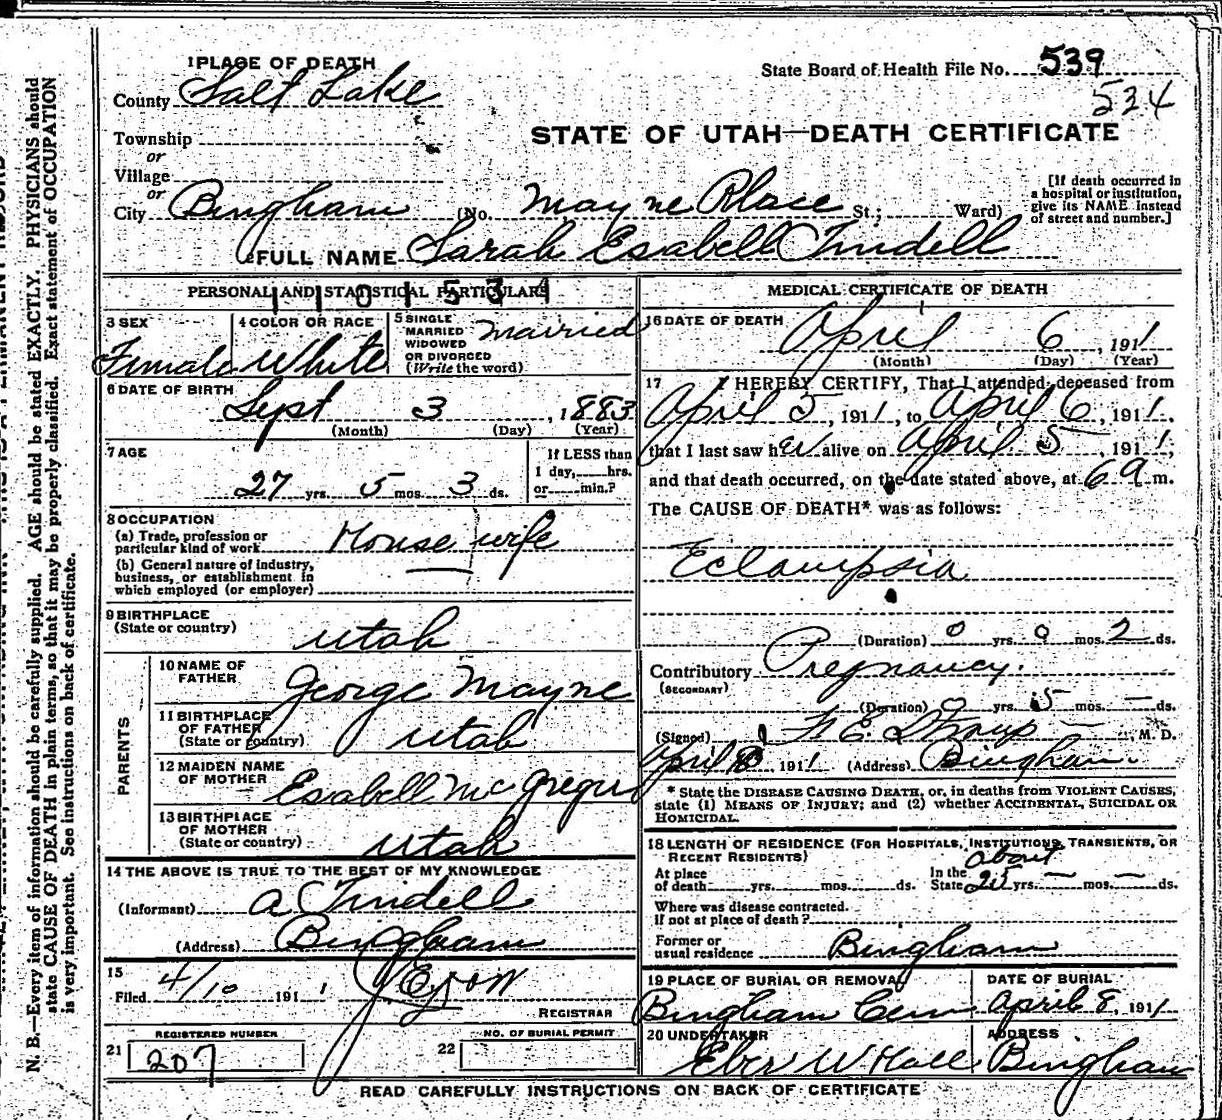 1 PLACE OF DEATH
State Board of Health File No. 539
534
County Salt Lake
STATE OF UTAH—DEATH CERTIFICATE
Township
or
Village
or
City Bingham (No. Mayne Place St.; Ward)
[If death occurred in a hospital or institution, give its NAME instead of street and number.]
2 FULL NAME Sarah Esabell Tindell
PERSONAL AND STATISTICAL PARTICULARS
1101531
3 SEX Female
4 COLOR OR RACE White
5 SINGLE MARRIED WIDOWED OR DIVORCED (Write the word) married
6 DATE OF BIRTH Sept 3, 1883
(Month) (Day) (Year)
7 AGE 27 yrs. 5 mos. 3 ds.
If LESS than 1 day, hrs. or min.?
8 OCCUPATION
(a) Trade, profession or particular kind of work House wife
(b) General nature of industry, business, or establishment in which employed (or employer) —
9 BIRTHPLACE (State or country) Utah
PARENTS
10 NAME OF FATHER George Mayne
11 BIRTHPLACE OF FATHER (State or country) Utah
12 MAIDEN NAME OF MOTHER Esabell McGregor
13 BIRTHPLACE OF MOTHER (State or country) Utah
14 THE ABOVE IS TRUE TO THE BEST OF MY KNOWLEDGE
(Informant) A Tindell
(Address) Bingham
15
Filed 4/10 1911
REGISTRAR
REGISTERED NUMBER
21 207
NO. OF BURIAL PERMIT
22
MEDICAL CERTIFICATE OF DEATH
16 DATE OF DEATH April 6, 1911
(Month) (Day) (Year)
17 I HEREBY CERTIFY, That I attended deceased from
April 5, 1911, to April 6, 1911,
that I last saw her alive on April 5, 1911,
and that death occurred, on the date stated above, at 6 a m.
The CAUSE OF DEATH* was as follows:
Eclampsia
(Duration) 0 yrs. 0 mos. 2 ds.
Contributory (SECONDARY) Pregnancy.
(Duration) 0 yrs. 5 mos. — ds.
(Signed) F. E. Straup, M. D.
April 8, 1911 (Address) Bingham
* State the DISEASE CAUSING DEATH, or, in deaths from VIOLENT CAUSES, state (1) MEANS OF INJURY; and (2) whether ACCIDENTAL, SUICIDAL OR HOMICIDAL.
18 LENGTH OF RESIDENCE (FOR HOSPITALS, INSTITUTIONS, TRANSIENTS, OR RECENT RESIDENTS)
about
At place of death yrs. mos. ds. In the State 25 yrs. — mos. — ds.
Where was disease contracted. If not at place of death?
Former or usual residence Bingham
19 PLACE OF BURIAL OR REMOVAL Bingham Cem
DATE OF BURIAL April 8, 1911
20 UNDERTAKER Eber W Hall
ADDRESS Bingham
READ CAREFULLY INSTRUCTIONS ON BACK OF CERTIFICATE
N. B.—Every item of information should be carefully supplied. AGE should be stated EXACTLY. PHYSICIANS should
state CAUSE OF DEATH in plain terms, so that it may be properly classified. Exact statement of OCCUPATION
is very important. See instructions on back of certificate.